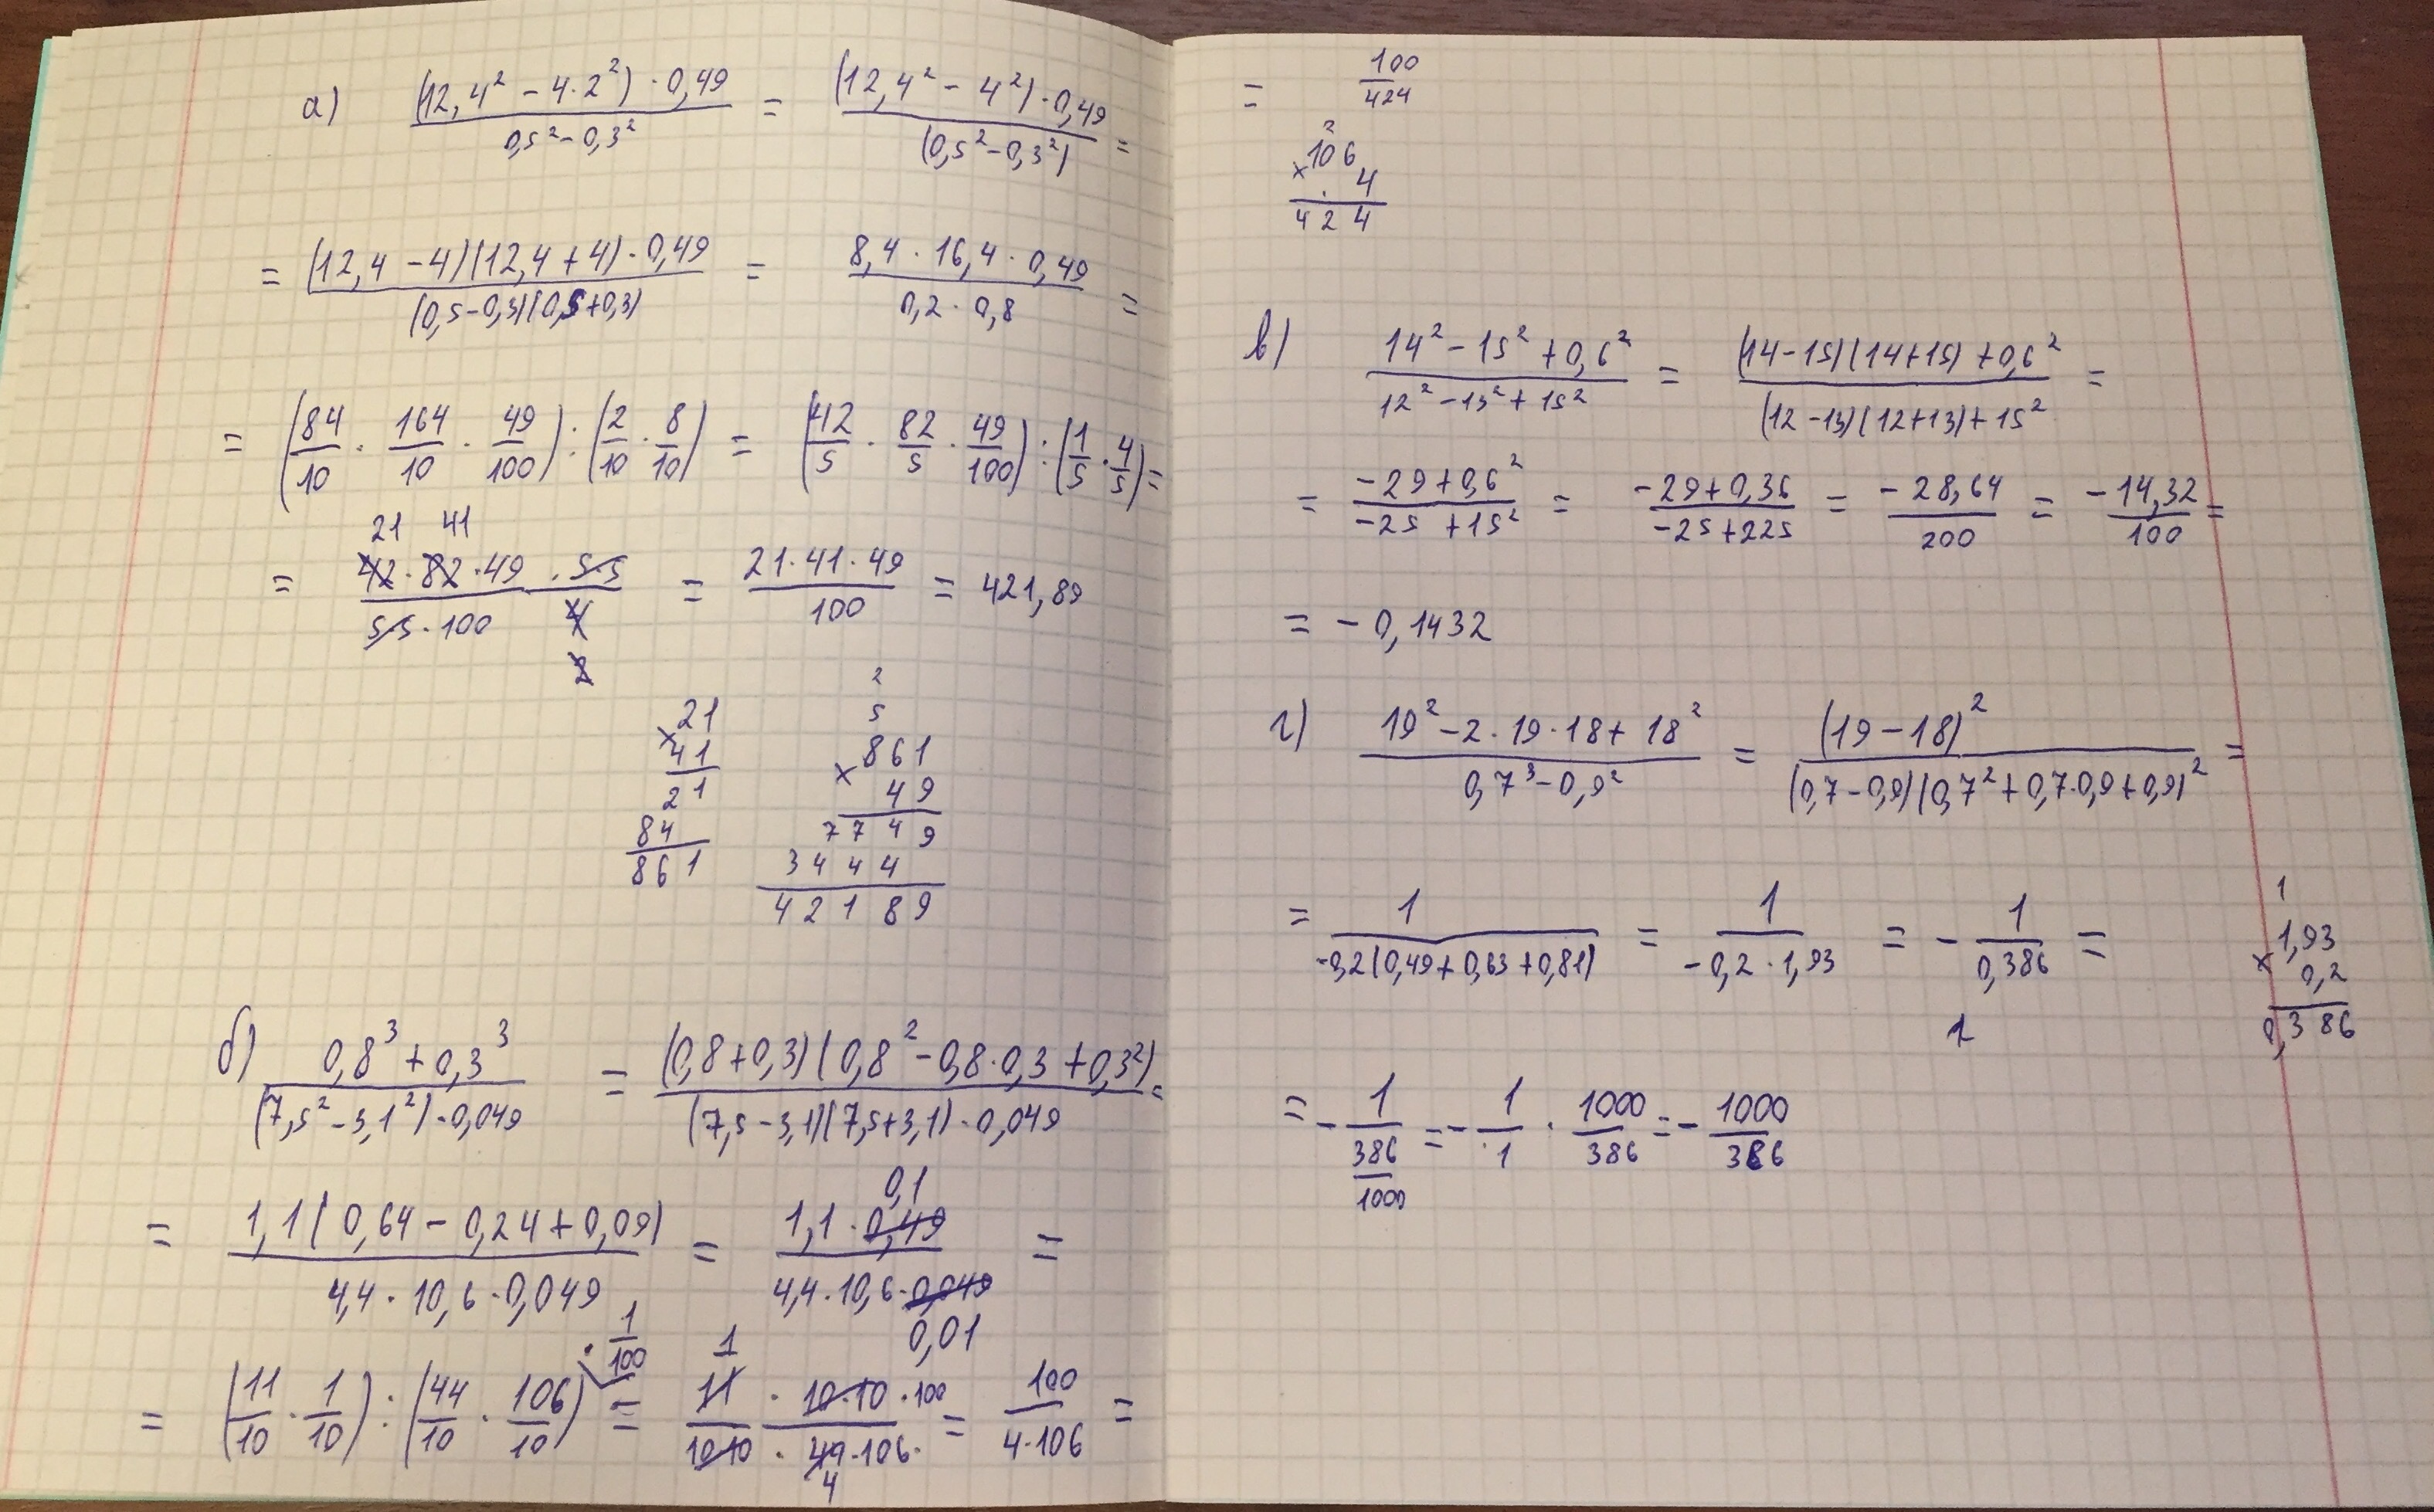 а) ((12,4² − 4·2²) · 0,49)/(0,5² − 0,3²) = ((12,4² − 4²) · 0,49)/((0,5² − 0,3²)) =
= ((12,4 − 4)(12,4 + 4) · 0,49)/((0,5 − 0,3)(0,5 + 0,3)) = (8,4 · 16,4 · 0,49)/(0,2 · 0,8) =
= (84/10 · 164/10 · 49/100) : (2/10 · 8/10) = (42/5 · 82/5 · 49/100) : (1/5 · 4/5) =
21 41
= (42 · 82 · 49)/(5·5 · 100) · (5·5)/4 = (21 · 41 · 49)/100 = 421,89
2
21
× 41
21
84
861
2
5
861
× 49
7749
3444
42189
б) (0,8³ + 0,3³)/((7,5² − 3,1²) · 0,049) = ((0,8 + 0,3)(0,8² − 0,8 · 0,3 + 0,3²))/((7,5 − 3,1)(7,5 + 3,1) · 0,049) =
0,1
= (1,1(0,64 − 0,24 + 0,09))/(4,4 · 10,6 · 0,049) = (1,1 · 0,49)/(4,4 · 10,6 · 0,049) =
0,01
· 1/100
1
= (11/10 · 1/10) : (44/10 · 106/10) = 11/(10·10) · (10·10 · 100)/(44 · 106) = 100/(4 · 106) =
4
= 100/424
2
106
× 4
424
в) (14² − 15² + 0,6²)/(12² − 13² + 15²) = ((14 − 15)(14 + 15) + 0,6²)/((12 − 13)(12 + 13) + 15²) =
= (−29 + 0,6²)/(−25 + 15²) = (−29 + 0,36)/(−25 + 225) = (−28,64)/200 = (−14,32)/100 =
= −0,1432
г) (19² − 2 · 19 · 18 + 18²)/(0,7³ − 0,9²) = (19 − 18)²/((0,7 − 0,9)(0,7² + 0,7·0,9 + 0,9)²) =
= 1/(−0,2(0,49 + 0,63 + 0,81)) = 1/(−0,2 · 1,93) = − 1/0,386 =
1
1
1,93
× 0,2
0,386
= − 1/(386/1000) = − 1/1 · 1000/386 = − 1000/386